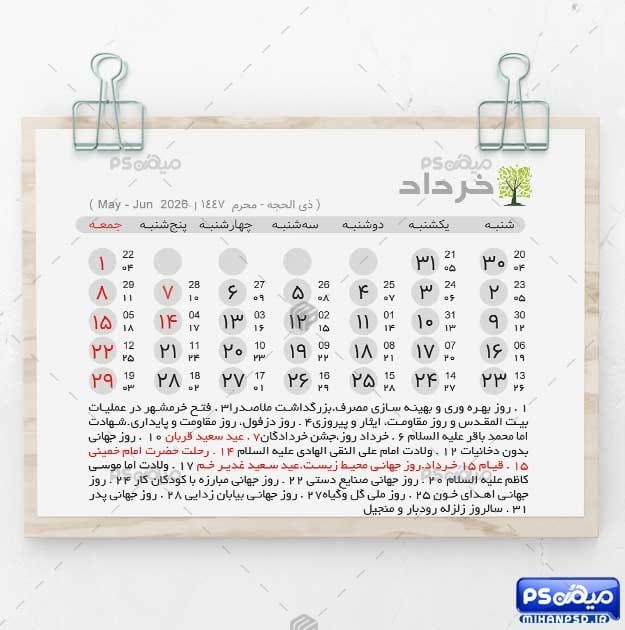 خرداد
( May - Jun 2026 | ذی الحجه - محرم ۱۴۴۷ )
شنبه یکشنبه دوشنبه سه‌شنبه چهارشنبه پنج‌شنبه جمعه
۳۰ 20 ۰۴ ۳۱ 21 ۰۵ ۱ 22 ۰۴
۲ 23 ۰۵ ۳ 24 ۰۶ ۴ 25 ۰۷ ۵ 26 ۰۸ ۶ 27 ۰۹ ۷ 28 ۱۰ ۸ 29 ۱۱
۹ 30 ۱۲ ۱۰ 31 ۱۳ ۱۱ 01 ۱۴ ۱۲ 02 ۱۵ ۱۳ 03 ۱۶ ۱۴ 04 ۱۷ ۱۵ 05 ۱۸
۱۶ 06 ۱۹ ۱۷ 07 ۲۰ ۱۸ 08 ۲۱ ۱۹ 09 ۲۲ ۲۰ 10 ۲۳ ۲۱ 11 ۲۴ ۲۲ 12 ۲۵
۲۳ 13 ۲۶ ۲۴ 14 ۲۷ ۲۵ 15 ۲۸ ۲۶ 16 ۲۹ ۲۷ 17 ۰۱ ۲۸ 18 ۰۲ ۲۹ 19 ۰۳
۱ . روز بهره وری و بهینه سازی مصرف،بزرگداشت ملاصدرا۳ . فتح خرمشهر در عملیات
بیت المقدس و روز مقاومت، ایثار و پیروزی۴ . روز دزفول، روز مقاومت و پایداری،شهادت
اما محمد باقر علیه السلام ۶ . خرداد روز،جشن خردادگان۷ . عید سعید قربان ۱۰ . روز جهانی
بدون دخانیات ۱۲ . ولادت امام علی النقی الهادی علیه السلام ۱۴ . رحلت حضرت امام خمینی
۱۵ . قیام ۱۵ خرداد،روز جهانی محیط زیست،عید سعید غدیر خم ۱۷ . ولادت اما موسی
کاظم علیه السلام ۲۰ . روز جهانی صنایع دستی ۲۲ . روز جهانی مبارزه با کودکان کار ۲۴ . روز
جهانی اهدای خون ۲۵ . روز ملی گل وگیاه۲۷ . روز جهانی بیابان زدایی ۲۸ . روز جهانی پدر
۳۱ . سالروز زلزله رودبار و منجیل
میهن PS
MIHANPSD.IR